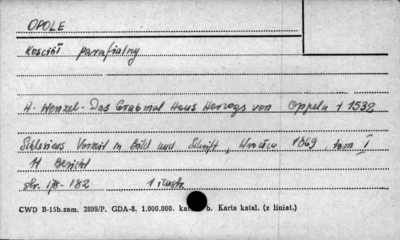 OPOLE
Kościół parafialny
H. Wenzel - Das Grabmal Hans Herzogs von Oppeln † 1532
Schlesiens Vorzeit in Bild und Schrift, Wrocław 1869, tom I
11 Bericht
str. 178-182 1 ilustr.
CWD B-15b.zam. 2899/P. GDA-8. 1.000.000. b. Karta katal. (z liniat.)